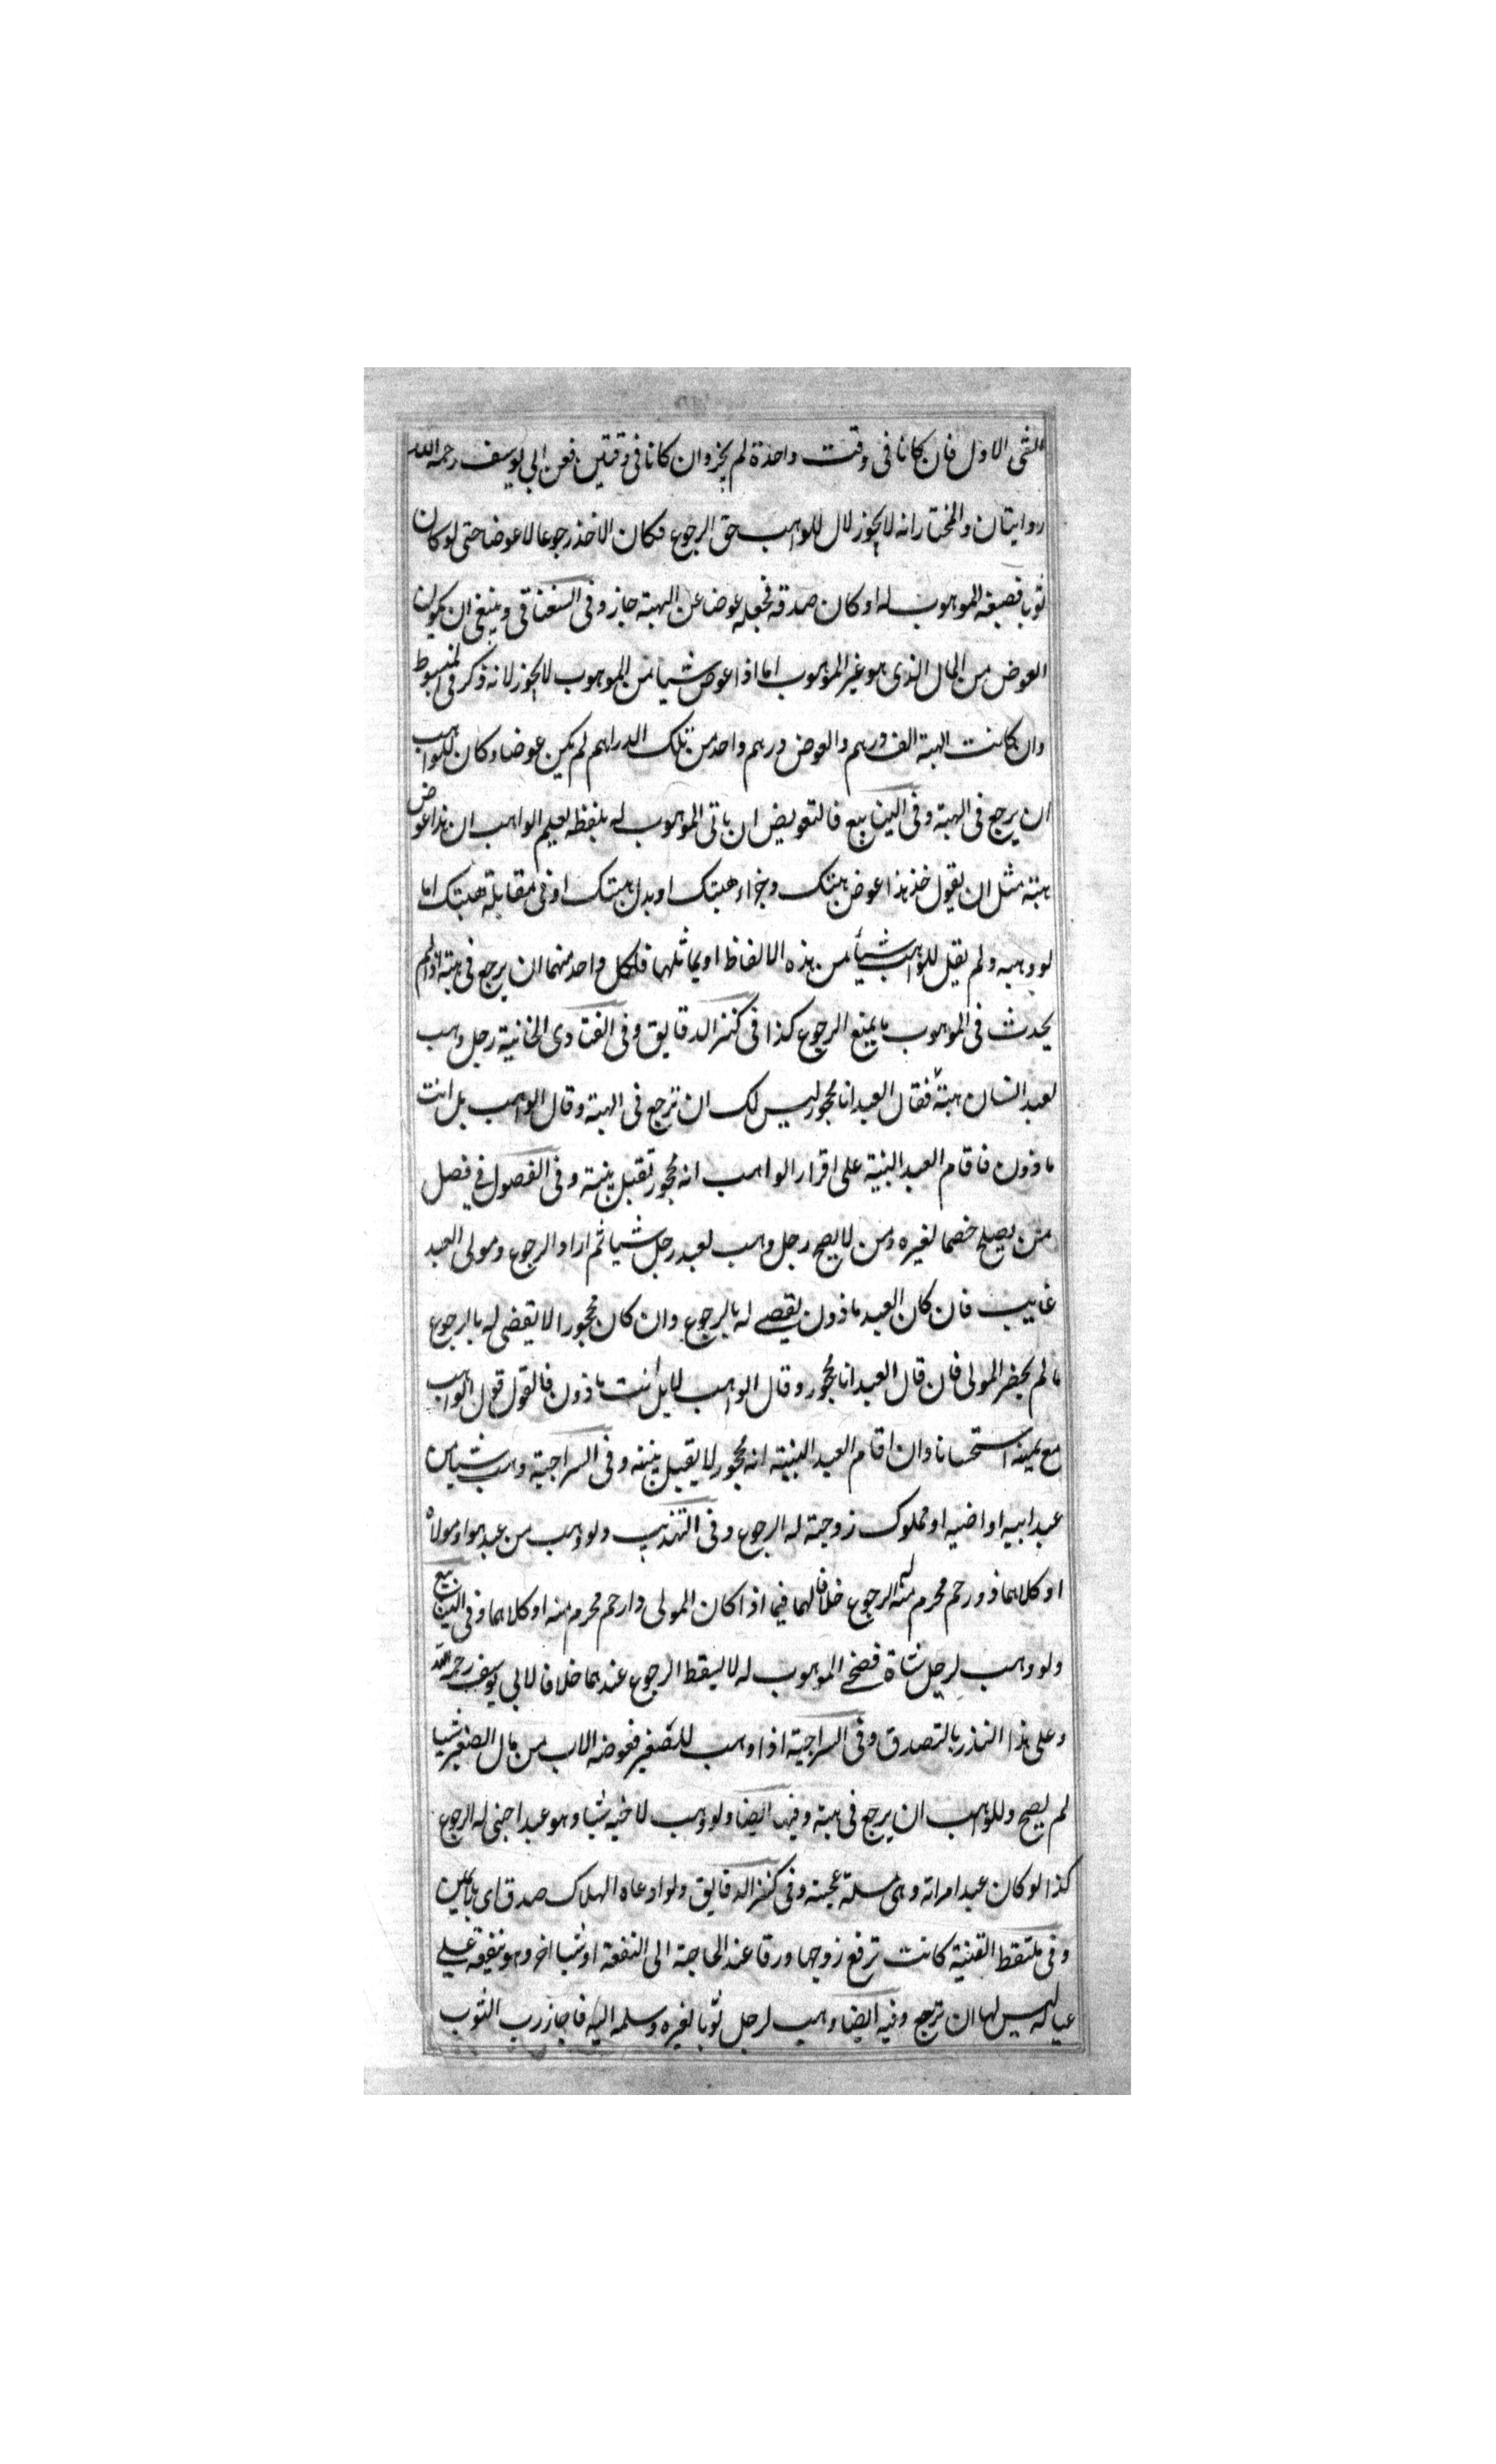 الشى الاول فان كانا فى وقت واحدة لم يجز وان كانا فى وقتين فعن ابي يوسف رحمه الله
روايتان والمختار انه لا يجوز لان للواهب حق الرجوع فكان الاخذ رجوعا لا عوضا حتى لو كان
ثوبا فصبغه الموهوب له او كان صدقه فجعله عوضا عن الهبة جاز وفى السغناقى وينبغى ان يكون
العوض من المال الذى هو غير الموهوب اما اذا عوض شيا من الموهوب لا يجوز لانه ذكر فى المبسوط
وان كانت الهبة الف درهم والعوض درهم واحد من تلك الدراهم لم يكن عوضا وكان للواهب
ان يرجع فى الهبة وفى الينابيع فالتعويض ان ياتى الموهوب له بلفظه يعلم الواهب ان هذا عوض
هبته مثل ان يقول خذ هذا عوض هبتك وجزاء هبتك او بدل هبتك او فى مقابلة هبتك اما
لو وهبه ولم يقل للواهب شيأ من هذه الالفاظ او يماثلها فلكل واحد منهما ان يرجع فى هبته اذا لم
يحدث فى الموهوب ما يمنع الرجوع كذا فى كنز الدقايق وفى الفتاوى الخانية رجل وهب
لعبد انسان هبة فقال العبد انا محجور ليس لك ان ترجع فى الهبة وقال الواهب بل انت
ماذون فاقام العبد البنية على اقرار الواهب انه محجور تقبل بنيته وفى الفصول في فصل
من يصلح خصما لغيره ومن لا يصح رجل وهب لعبد رجل شيا ثم اراد الرجوع ومولى العبد
غايب فان كان العبد ماذون يقضے له بالرجوع وان كان محجورا لا يقضى له بالرجوع
ما لم يحضر المولى فان قال العبد انا محجور وقال الواهب لا بل انت ماذون فالقول قول الواهب
مع يمينه استحسانا وان اقام العبد البنية انه محجور لا يقبل بنيته وفى السراجية وهب شيا من
عبد ابيه او اخيه او مملوك زوجته له الرجوع وفى التهذيب ولو وهب من عبد هو او مولاه
او كلاهما ذو رحم محرم منه له الرجوع خلافا لهما فيما اذا كان المولى ذا رحم محرم منه او كلاهما وفى الينابيع
ولو وهب لرجل شاة فضحے الموهوب له لا يسقط الرجوع عندهما خلافا لابي يوسف رحمه الله
وعلى هذا النذر بالتصدق وفى السراجية اذا وهب للصغير فعوضه الاب من مال الصغير شيا
لم يصح وللواهب ان يرجع فى هبته وفيها ايضا ولو وهب لاخيه شيا وهو عبد اجنبى له الرجوع
كذا لو كان عبد امراته وهى وفى كنز الدقايق ولو ادعاه الهلاك صدق اى باليمين
وفى ملتقط القنية كانت ترفع زوجها ورقا عند الحاجة الى النفقة او شيا اخر وهو ينفقه علے
عياله ليس لها ان ترجع وفيه ايضا وهب لرجل ثوبا لغيره وسلمه اليه فاجاز رب الثوب